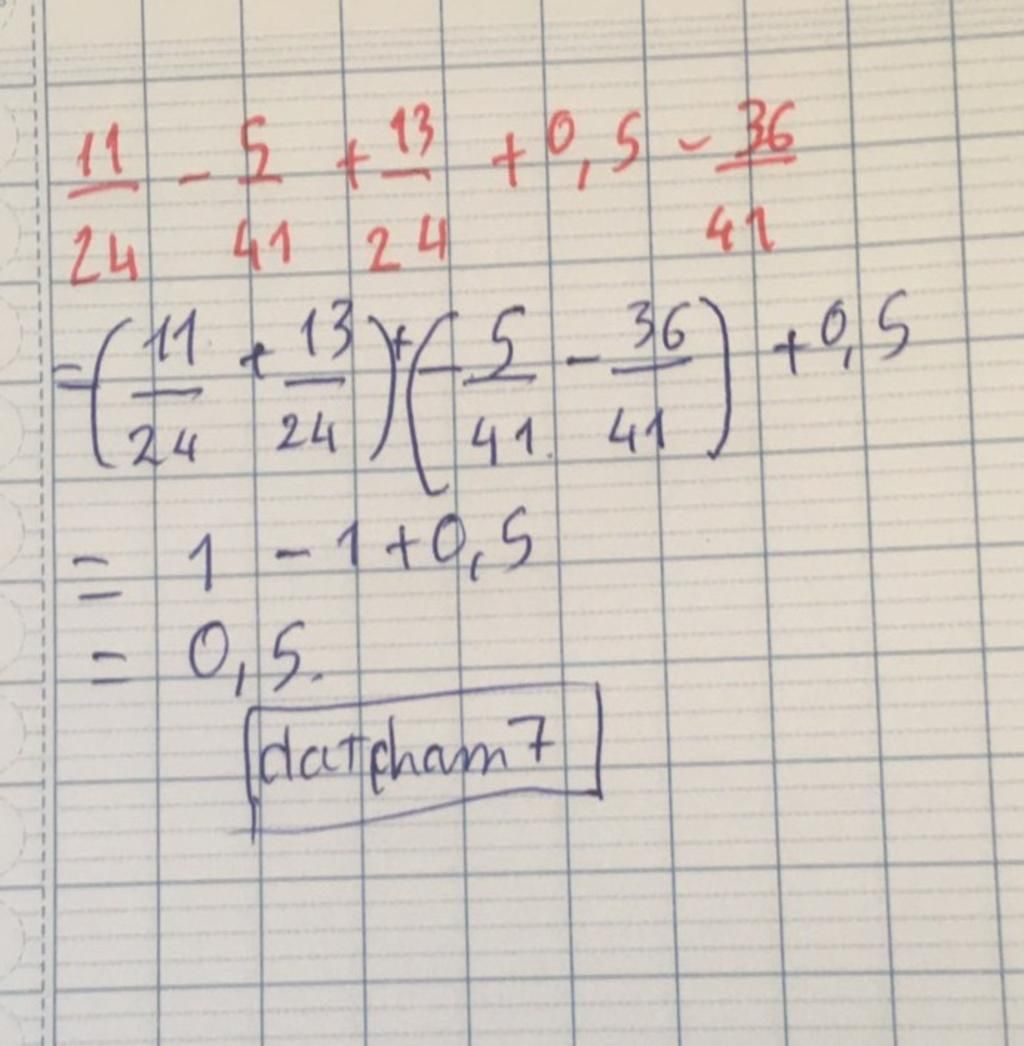 11/24 - 5/41 + 13/24 + 0,5 - 36/41
= (11/24 + 13/24) + (-5/41 - 36/41) + 0,5
= 1 - 1 + 0,5
= 0,5.
datpham7